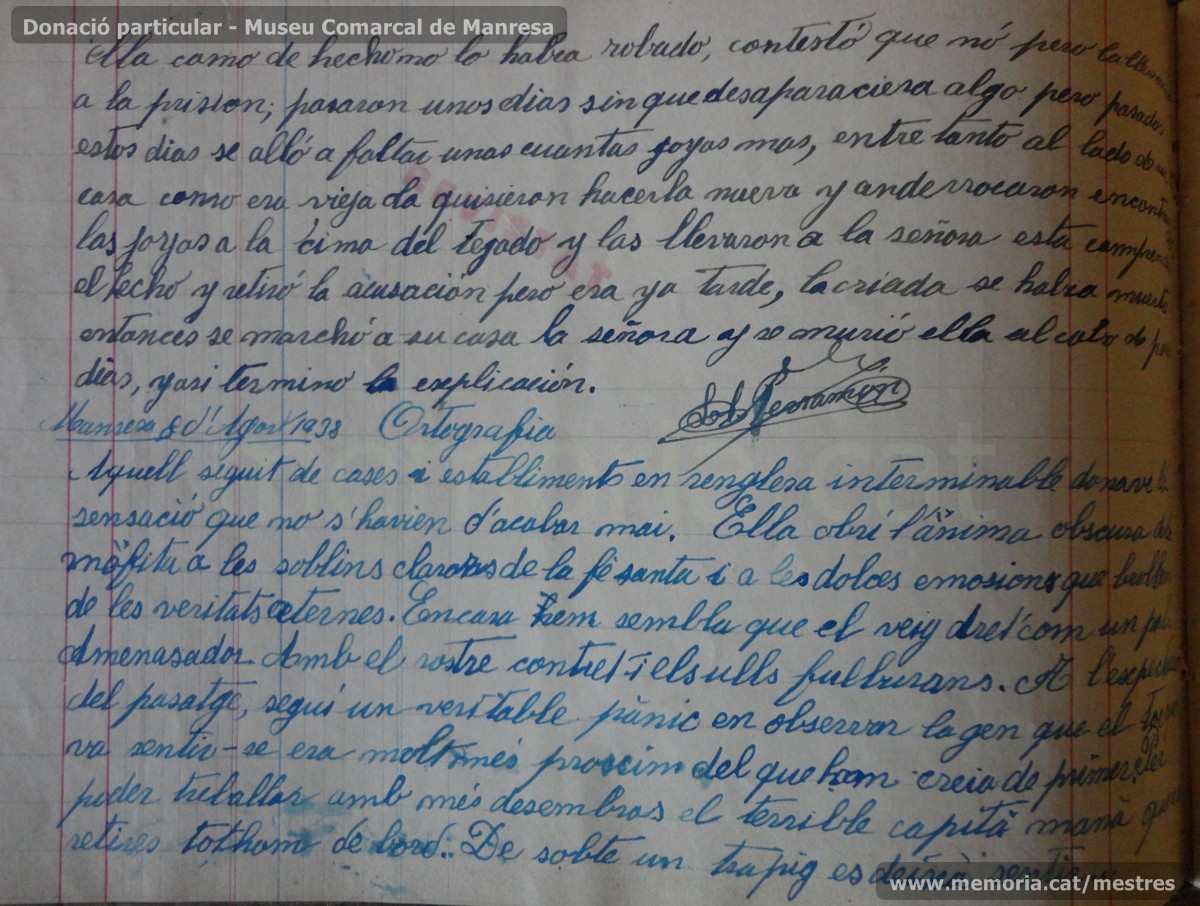 Donació particular - Museu Comarcal de Manresa
Ella como de hecho no lo habia robado, contestó que nó pero la llevaron
a la prision; pasaron unos dias sin que desaparaciera algo pero pasados
estos dias se alló a faltar unas cuantas joyas mas, entre tanto al lado de
casa como era vieja la quisieron hacerla nueva y anderrocaron
las joyas a la cima del tejado y las llevaron a la señora esta
el hecho y retiró la acusación pero era ya tarde, la criada se habia muerto
entonces se marchó a su casa la señora y se murió ella al cabo de
dias, y asi termino la explicación.
Manresa 8 d'Agost 1938 Ortografia
Aquell seguit de cases i establiments en renglera interminable donava la
sensació que no s'havien d'acabar mai. Ella obrí l'ànima obscura
a les soblins clarors de la fe santa i a les dolces emosions que
de les veritats eternes. Encara hem sembla que el veig dret com un
Amenasador Amb el rostre contret i els ulls fulgurans. A
del pasatge, seguí un veritable pànic en observar la gen que el
va sentir-se era molt més procsim del que hom creia de primer. Per
poder treballar amb més desembras el terrible capità manà que
retires tothom de bord. De sobte un trapig es deixà
www.memoria.cat/mestres